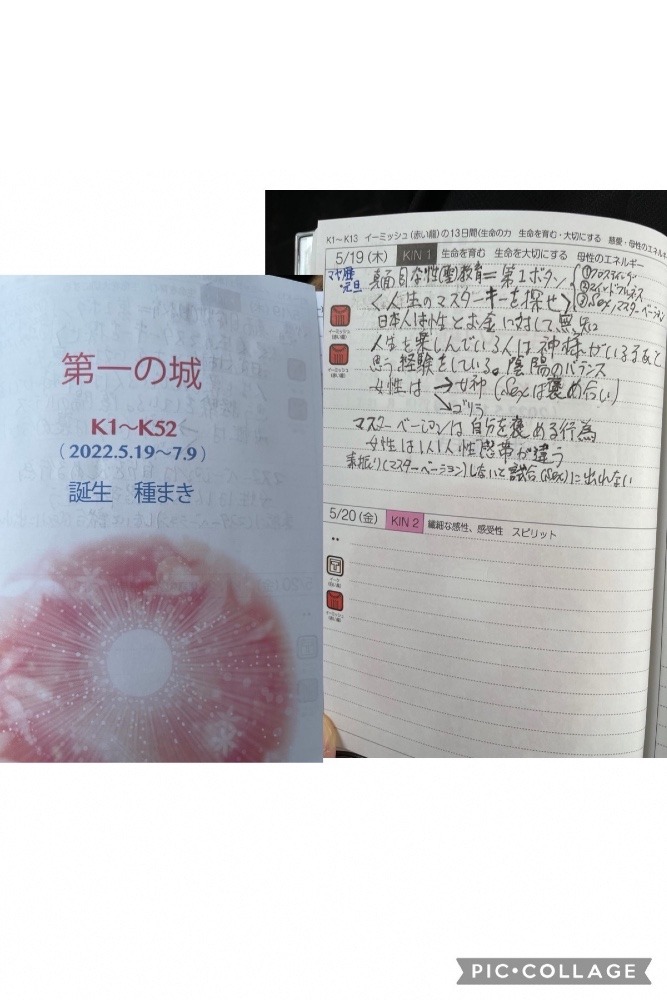 第一の城
K1〜K52
(2022.5.19〜7.9)
誕生 種まき
K1〜K13 イーミッシュ(赤い龍)の13日間(生命の力 生命を育む・大切にする 慈愛・母性のエネルギ
5/19(木) KIN 1 生命を育む 生命を大切にする 母性のエネルギー
マヤ暦
元旦
真面目な性(聖)教育=第1ボタン
①
②マインドフルネス
③Sexマスターベーション
<人生のマスターキーを探せ>
日本人は性とお金に対して無知
人生を楽しんでいる人は神様がいるなって
思う経験をしている。陰陽のバランス
女性は→女神(Sexは褒め合い)
↘ゴリラ
マスターベーションは自分を褒める行為
女性は1人1人性感帯が違う
素振り(マスターベーション)しないと試合(Sex)に出れない
イーミッシュ
(赤い龍)
イーミッシュ
(赤い龍)
5/20(金) KIN 2 繊細な感性、感受性 スピリット
イーク
(白い風)
イーミッシュ
(赤い龍)
PIC•COLLAGE